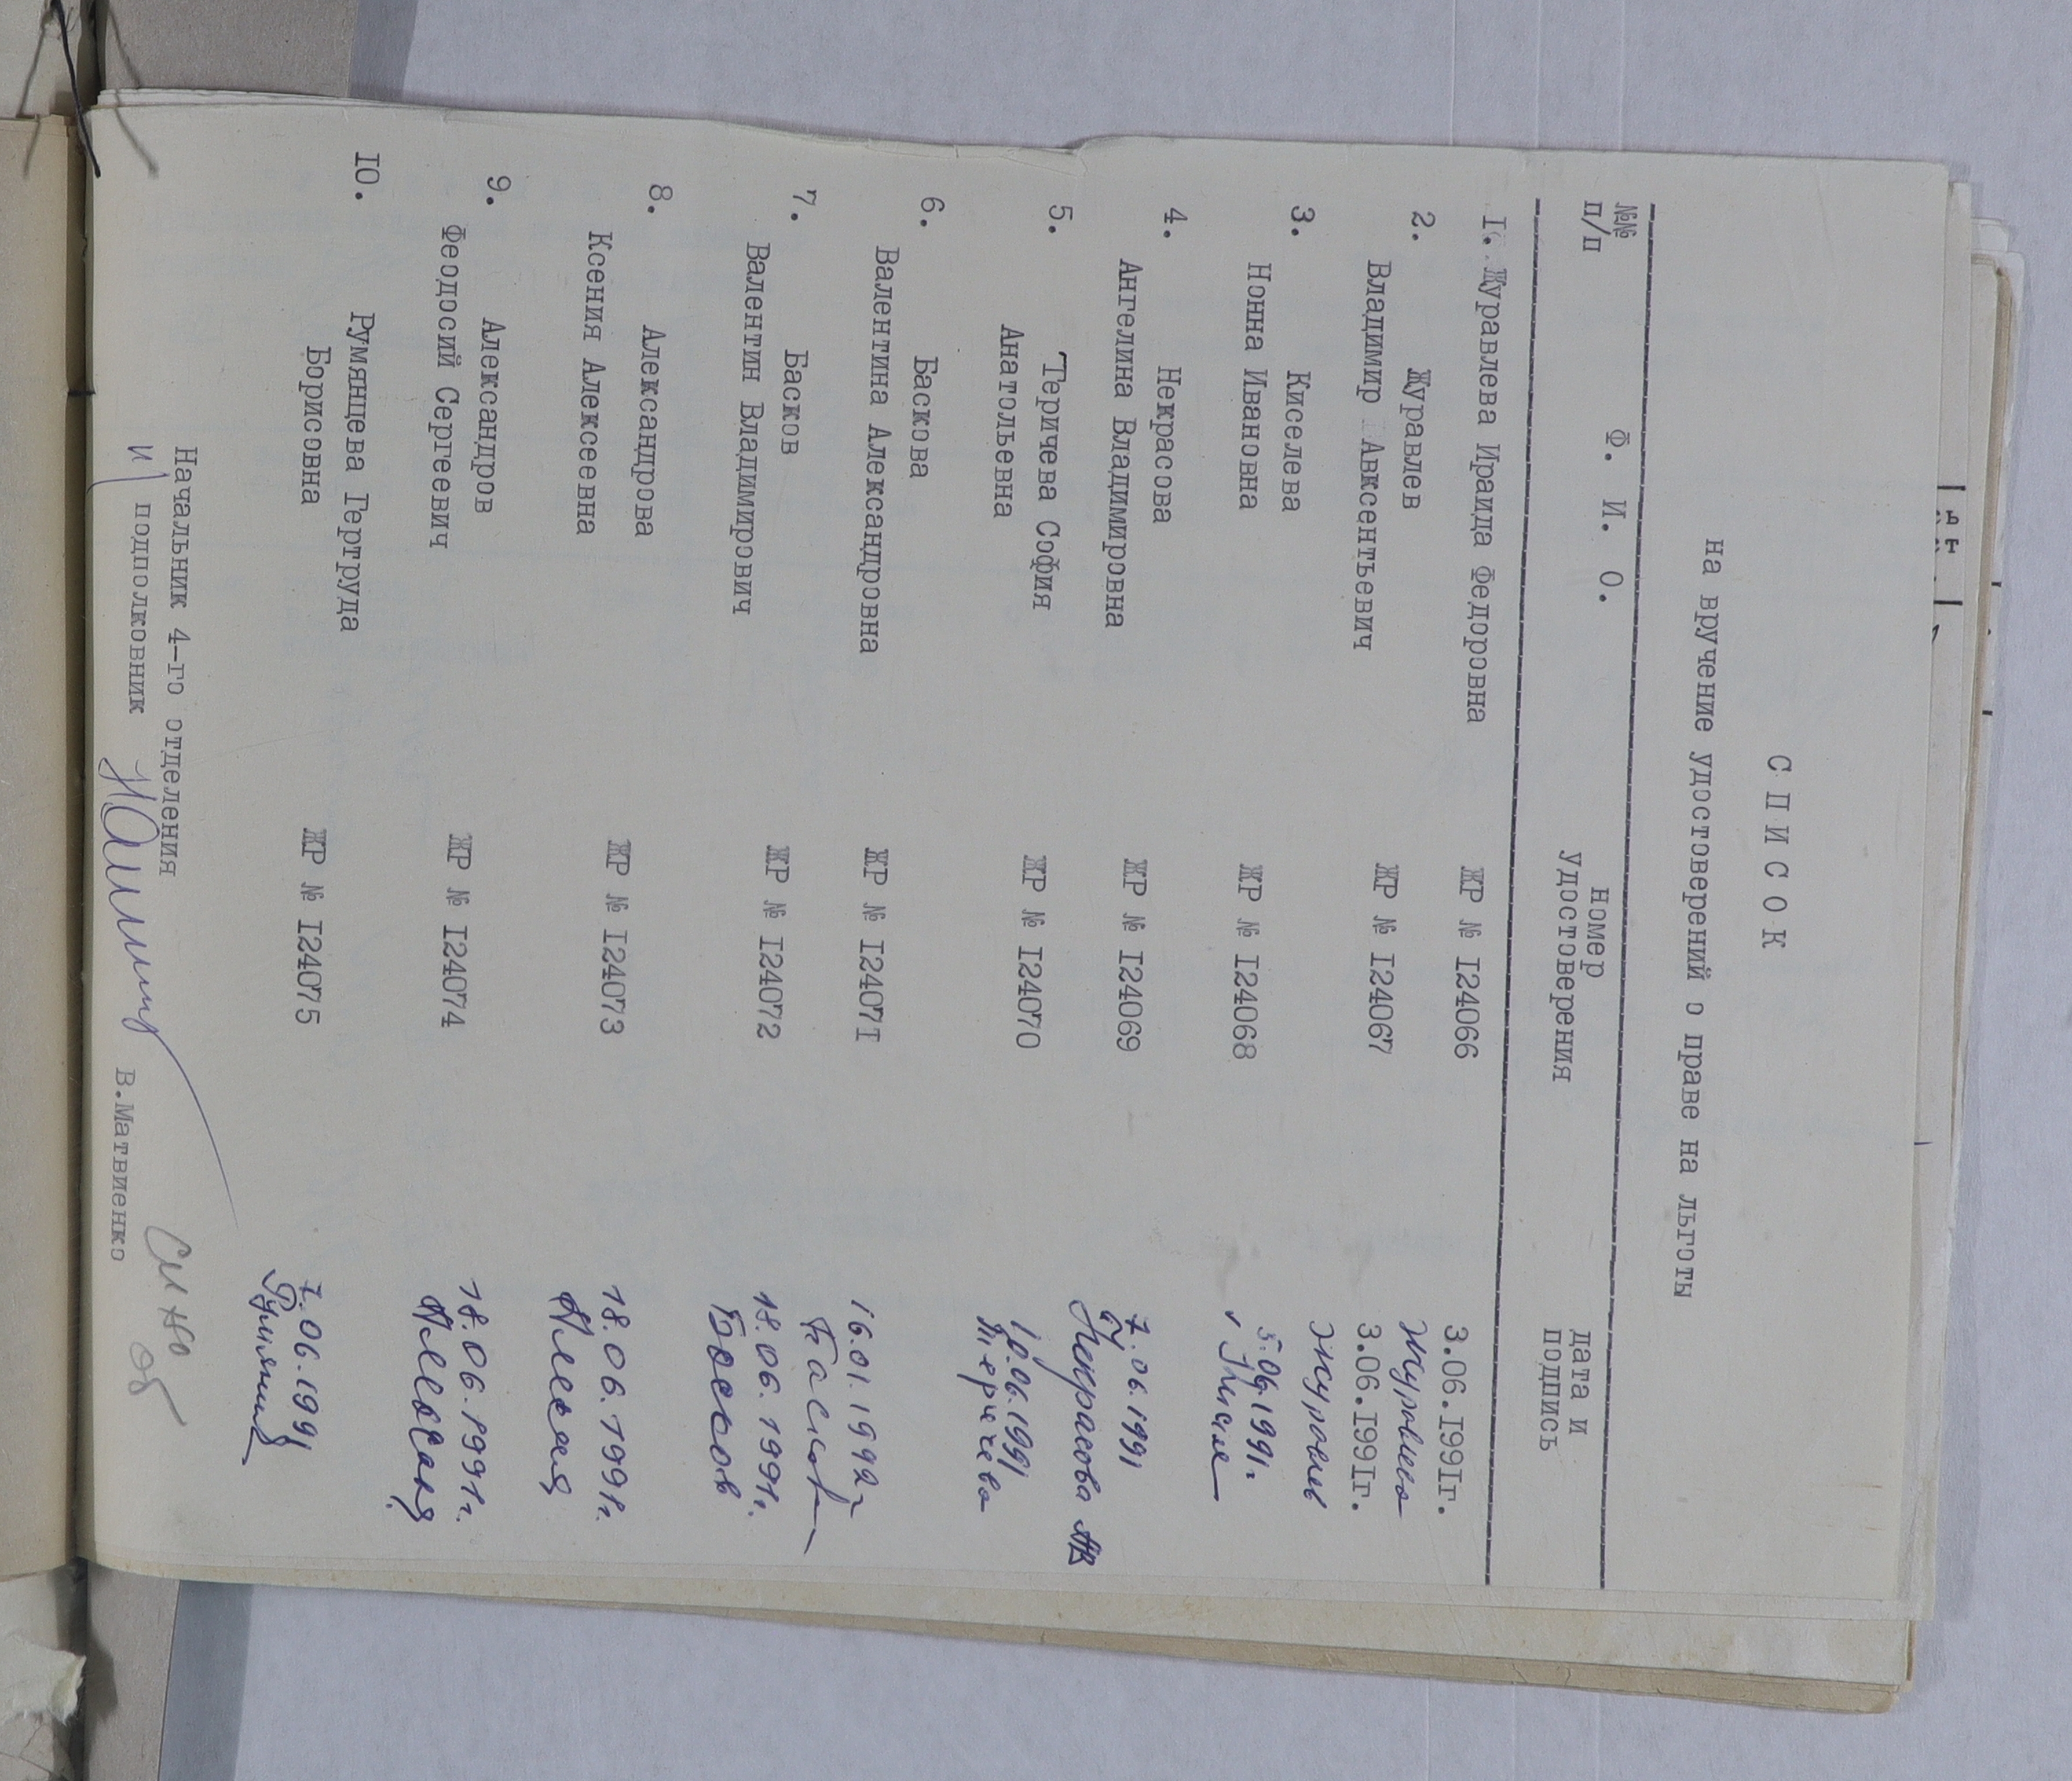 С П И С О К
на вручение удостоверений о праве на льготы
№№ п/п Ф. И. О. номер удостоверения дата и подпись
I. Журавлева Ираида Федоровна ЖР № I24066 3.06.I99Iг.
2. Журавлев Владимир Авксентьевич ЖР № I24067 3.06.I99Iг.
3. Киселева Нонна Ивановна ЖР № I24068 5.06.1991г.
4. Некрасова Ангелина Владимировна ЖР № I24069 7.06.1991 Некрасова АВ
5. Теричева София Анатольевна ЖР № I24070 10.06.1991 Теричева
6. Баскова Валентина Александровна ЖР № I2407I 16.01.1992г
7. Басков Валентин Владимирович ЖР № I24072 18.06.1991г. Басков
8. Александрова Ксения Алексеевна ЖР № I24073 18.06.1991г.
9. Александров Феодосий Сергеевич ЖР № I24074 18.06.1991г.
IO. Румянцева Гертруда Борисовна ЖР № I24075 7.06.1991
Начальник 4-го отделения
подполковник В.Матвиенко